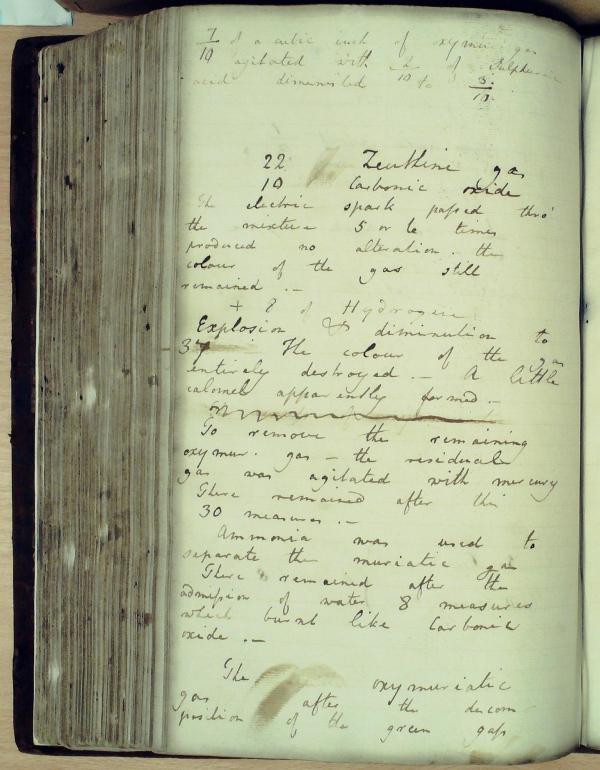 7/10 of a cubic inch of oxymur gas
agitated with 2/10 of Sulphu
acid diminished to 3/10
22 Euchlorine gas
10 Carbonic oxide
The electric spark passed thro'
the mixture 5 or 6 times
produced no alteration. the
colour of the gas still
remained . —
+ 8 of Hydrogene
Explosion & diminution to
37 The colour of the gas
entirely destroyed . — A little
calomel apparently formed . —
To remove the remaining
oxymur . gas — the residual
gas was agitated with mercury
There remained after this
30 measures . —
Ammonia was used to
separate the muriatic gas
There remained after the
admission of water 8 measures
which burnt like Carbonic
oxide . —
The oxymuriatic
gas after the decom
position of the green gas